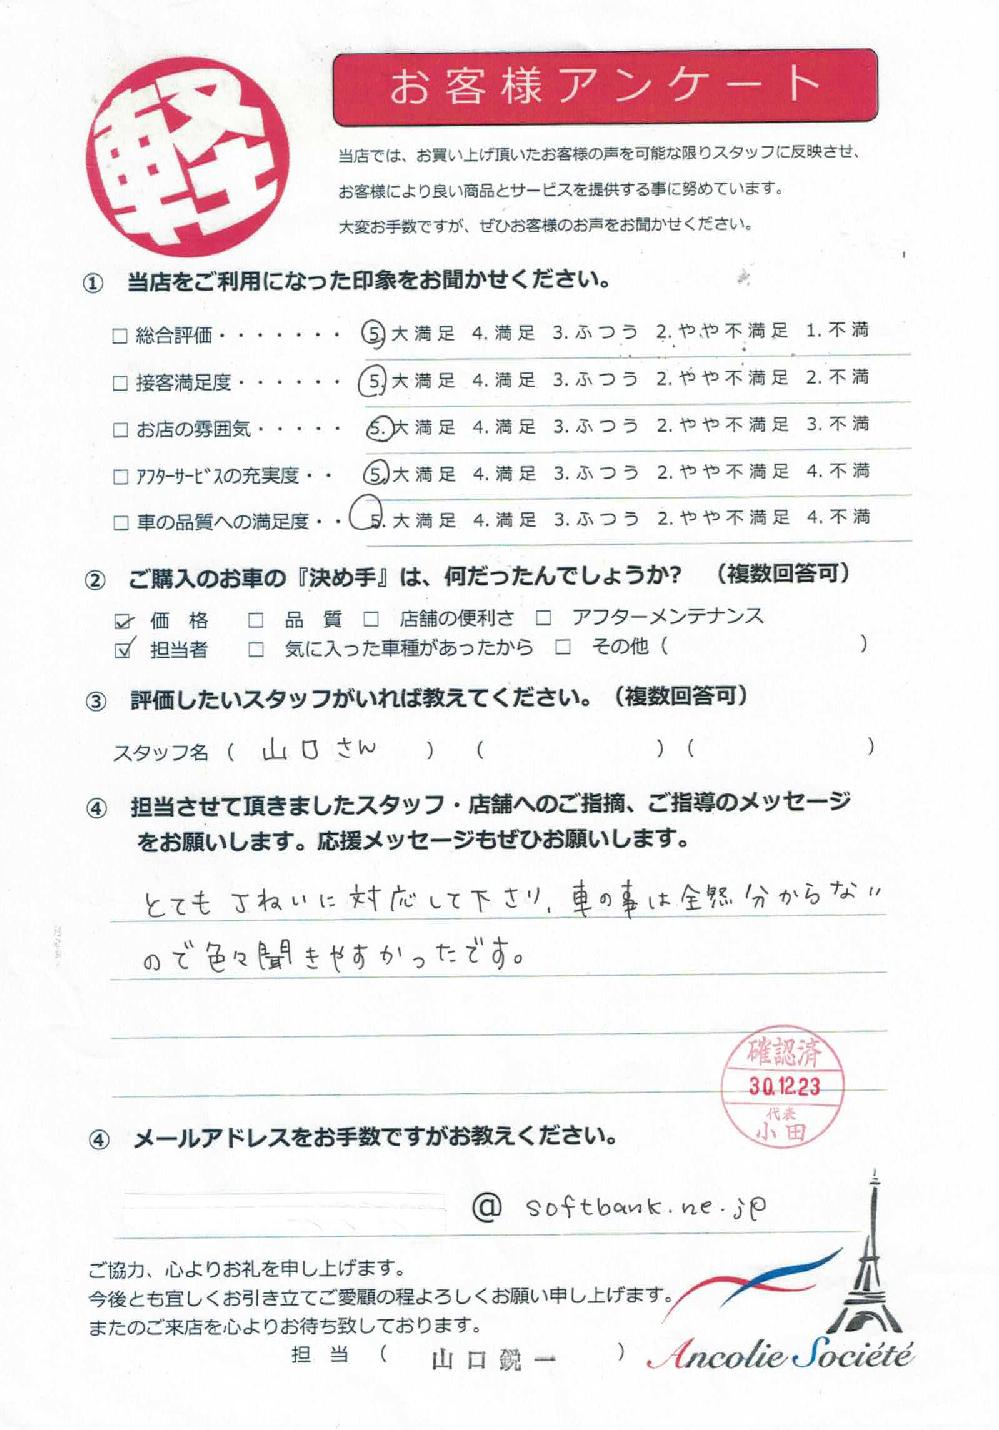 軽
お客様アンケート
当店では、お買い上げ頂いたお客様の声を可能な限りスタッフに反映させ、
お客様により良い商品とサービスを提供する事に努めています。
大変お手数ですが、ぜひお客様のお声をお聞かせください。
① 当店をご利用になった印象をお聞かせください。
□ 総合評価・・・・・・・ 5.大満足 4.満足 3.ふつう 2.やや不満足 1.不満
□ 接客満足度・・・・・・ 5.大満足 4.満足 3.ふつう 2.やや不満足 2.不満
□ お店の雰囲気・・・・・ 5.大満足 4.満足 3.ふつう 2.やや不満足 3.不満
□ ｱﾌﾀｰｻｰﾋﾞｽの充実度・・ 5.大満足 4.満足 3.ふつう 2.やや不満足 4.不満
□ 車の品質への満足度・・ 5.大満足 4.満足 3.ふつう 2.やや不満足 4.不満
② ご購入のお車の『決め手』は、何だったんでしょうか？ （複数回答可）
☑ 価格 □ 品質 □ 店舗の便利さ □ アフターメンテナンス
☑ 担当者 □ 気に入った車種があったから □ その他（ ）
③ 評価したいスタッフがいれば教えてください。（複数回答可）
スタッフ名（ 山口さん ）（ ）（ ）
④ 担当させて頂きましたスタッフ・店舗へのご指摘、ご指導のメッセージ
をお願いします。応援メッセージもぜひお願いします。
とても丁ねいに対応して下さり、車の事は全然分からない
ので色々聞きやすかったです。
確認済
30.12.23
代表
小田
④ メールアドレスをお手数ですがお教えください。
@ softbank.ne.jp
ご協力、心よりお礼を申し上げます。
今後とも宜しくお引き立てご愛顧の程よろしくお願い申し上げます。
またのご来店を心よりお待ち致しております。
担当（ 山口鋭一 ）
Ancolie Société